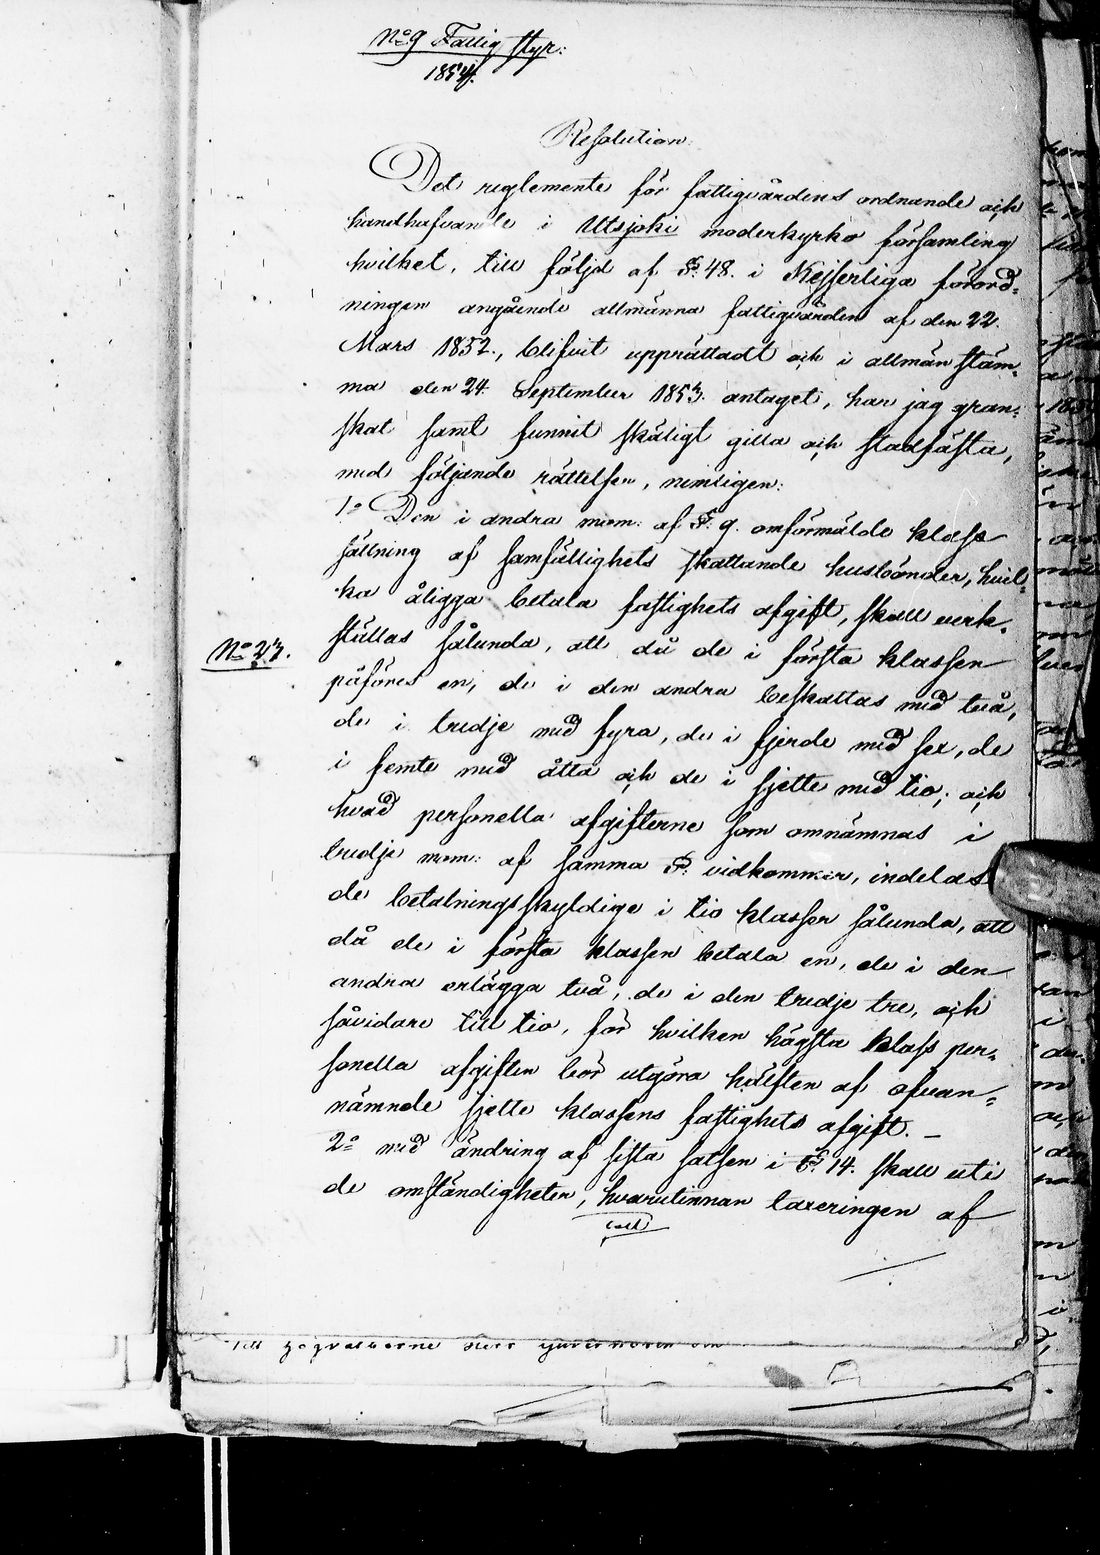 No 9 Fattig styr:
1854.
Resolution.
Det reglemente för fattigvårdens ordnande och
handhafvande i Utsjoki moderkyrko församling
hvilket, till följd af §. 48. i Kejserliga förord=
ningen angående allmänna fattigvården af den 22.
Mars 1852., blifvit upprättadt och i allmän stäm=
ma den 24. September 1853. antaget, har jag gran=
skat samt funnit skäligt gilla och stadfästa,
med följande rättelser, nemligen:
1o Den i andra mom: af §. 9. omförmälde klass
sällning af samfällighets skattande husbönder, hvil=
ka åligga betala fastighets afgift, skall verk=
No 23.
ställas sålunda, att då de i första klassen
påföres en, de i den andra beskattas med två,
de i tredje med fyra, de i fjerde med sex, de
i femte med åtta och de i sjette med tio; och
hvad personella afgifterne som omnämnas i
tredje mom: af samma §. vidkommer, indelas
de betalningsskyldige i tio klasser sålunda, att
då de i första klassen betala en, de i den
andra erlägga två, de i den tredje tre, och
såvidare till tio, för hvilken högsta klass per=
sonella afgiften bör utgöra hälften af ofvan=
nämnde sjette klassens fastighets afgift. —
2o med ändring af sista satsen i §. 14. skall uti
de omständigheter, hvarutinnan taxeringen af